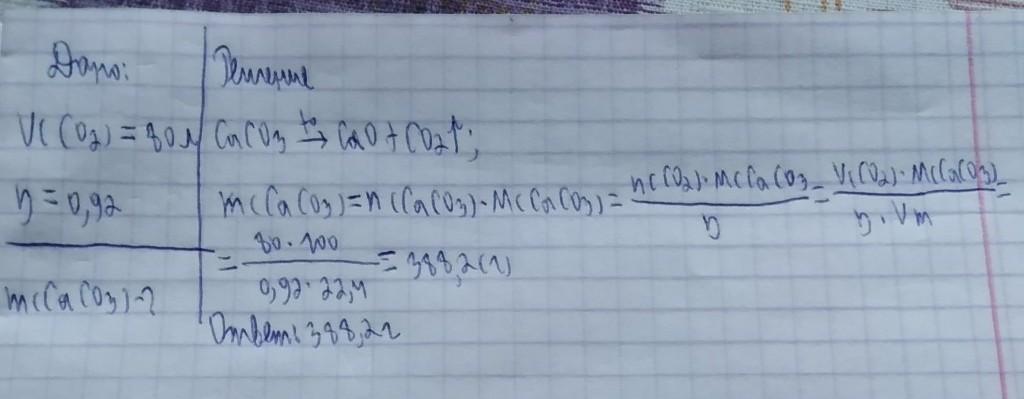 Дано:
V(CO2) = 80 л
η = 0,92
m(CaCO3) - ?
Решение
CaCO3 t°→ CaO + CO2↑;
m(CaCO3) = n(CaCO3)·M(CaCO3) = n(CO2)·M(CaCO3 / η = V(CO2)·M(CaCO3) / η·Vm =
= 80·100 / 0,92·22,4 = 388,2(г)
Ответ: 388,2г